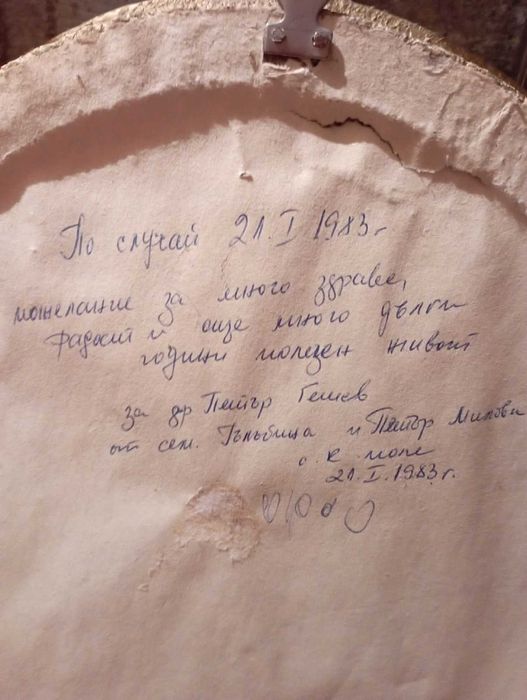 По случай 21.I 1983 г
пожелание за много здраве,
радост и още много дълги
години полезен живот
за др Петър Гешев
от сем. Гълъбица и Петър Милови
21.I.1983 г.